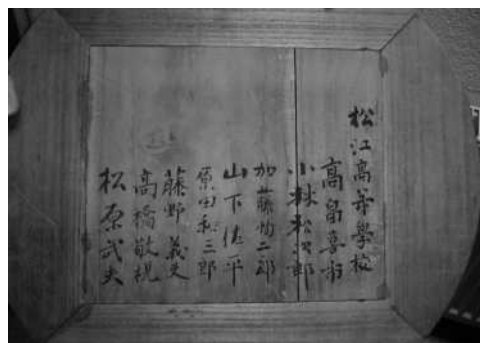 松江高等學校
高畠喜市
小林松次郎
加藤物二郎
山下佐一平
原田和三郎
藤野義夫
高橋敬視
松原武夫